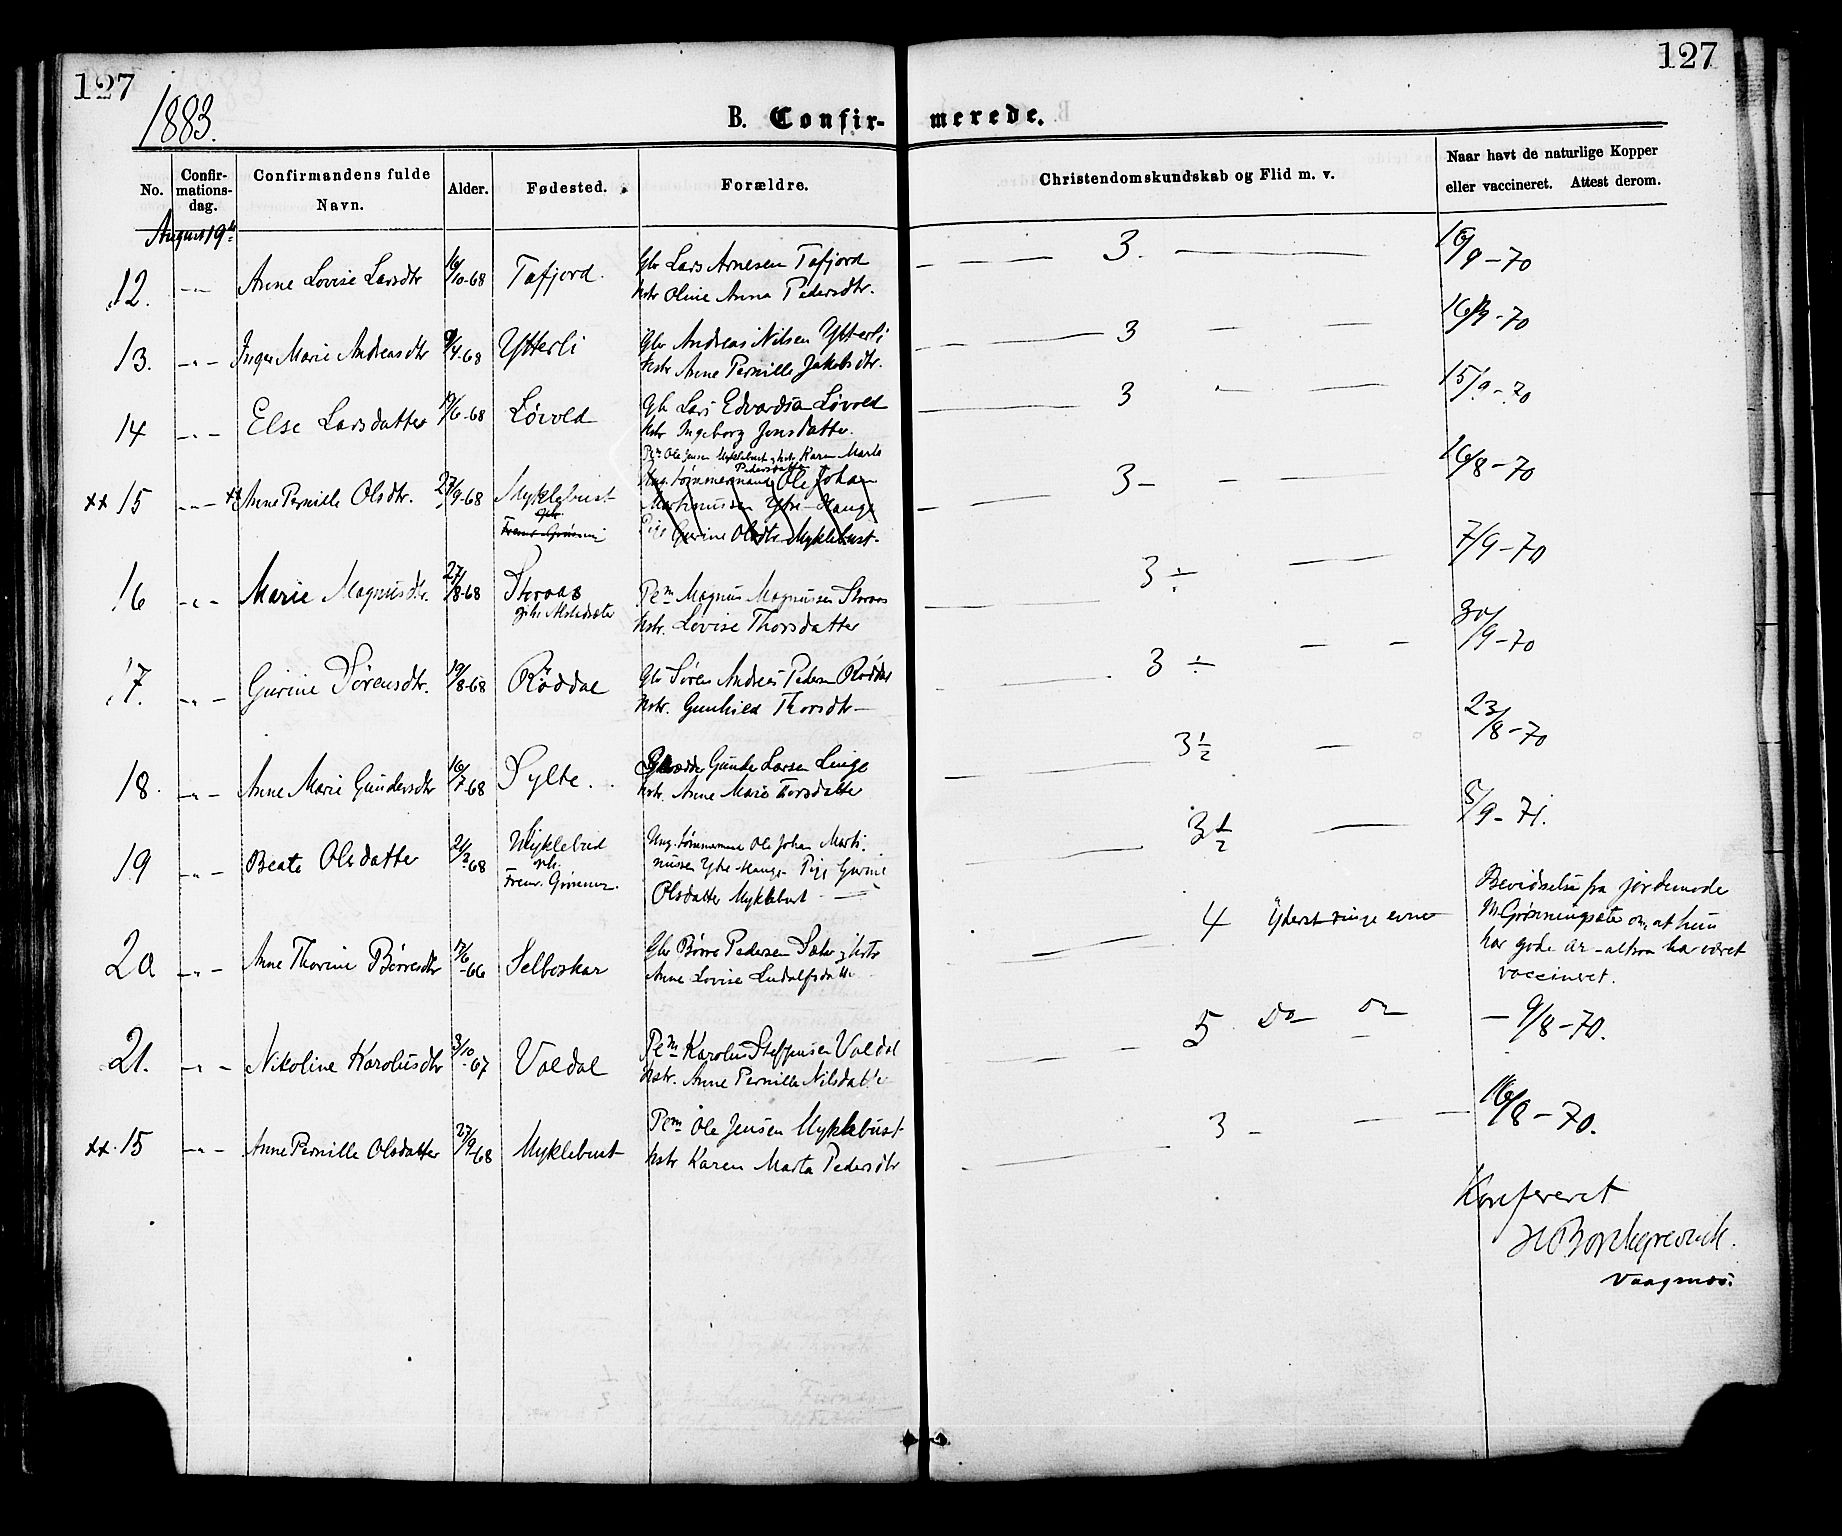 127
127
1883.
B. Confir- merede.
No.
Confir-
mations-
dag.
Confirmandens fulde
Navn.
Alder.
Fødested.
Forældre.
Christendomskundskab og Flid m. v.
Naar havt de naturlige Kopper
eller vaccineret. Attest derom.
August 19de
12. -"- Anne Lovise Larsdtr 16/10-68 Tafjord. Gbr Lars Arnesen Tafjord 3. 16/9-70
Hstr Oline Anna Pedersdtr.
13. -"- Inger Marie Andreasdtr 9/4-68 Ytterli Gbr Andreas Nilsen Ytterli 3 16/9-70
Hstr Anne Pernille Jakobsdtr.
14 -"- Else Larsdatter 19/6-68 Løvold Gbr Lars Edvardsen Løvold 3 15/9-70
Hstr Ingeborg Jonsdatter.
Pem Ole Jensen Myklebust og hstr Karen Marta
Pedersdatter
xx 15 -"- xx Anne Pernille Olsdtr. 27/9-68 Myklebust Ung. tømmermand Ole Johan 3 - 16/8-70
Martinussen Ytre-Hauge
Pige Gurine Olsdtr Myklebust.
16 -"- Marie Magnusdtr. 27/8-68 Storaas Pem Magnus Magnussen Storaas 3 ÷ 7/9-70
Hstr. Lovise Thorsdatter
17. -"- Gurine Sørensdtr. 19/8-68 Røddal Gbr Søren Andreas Pedersen Røddal 3 ÷ 30/9-70
Hstr. Gunhild Thorsdtr-
18. -"- Anne Marie Gundersdtr 16/7-68 Sylte. Gunder Larsen Linge 3 1/2 23/8-70
Hstr. Anne Marie Thorsdatter
19 -"- Beate Olsdatter 21/2-68 Myklebust Ung. tømmermand Ole Johan Marti- 3 1/2 5/9-71.
nussen Ytre-Hauge Pige Gurine
Olsdatter Myklebust
20 -"- Anne Thorine Børresdtr 7/6-66 Selboskar Gbr Børre Pedersen Sæter og hstr 4 Yderst ringe evner
Anne Lovise Ludolfsdatter
Bevidnelse fra jordemoder
M. Grønningsæter om, at hun
har gode ar - altsaa har været
vaccineret.
21. -"- Nikoline Karolusdtr 3/10-67 Valdal Pem Karolus Steffensen Valdal 5 Do Do - 9/8-70.
Hstr. Anne Pernille Nilsdatter
xx. 15 -"- Anne Pernille Olsdatter 27/9-68 Myklebust Pem Ole Jensen Myklebust 3 - 16/8-70.
Hstr Karen Marta Pedersdtr
Konfereret
Borchgrevink.